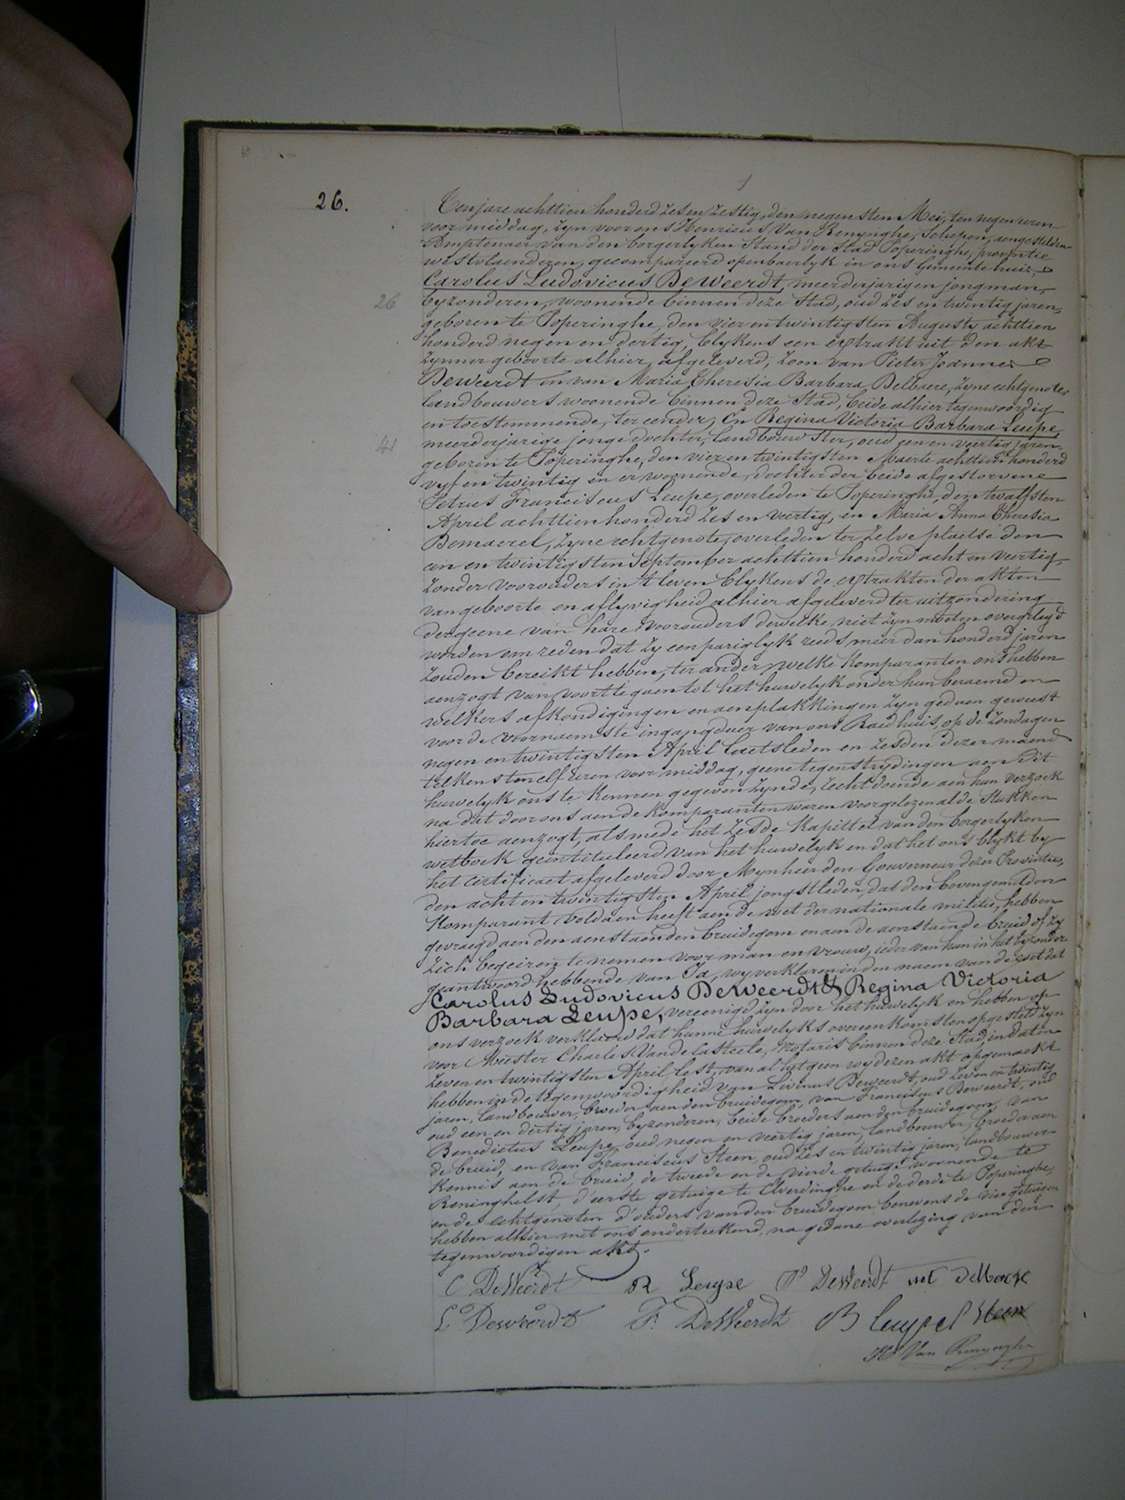 26.
Ten jare achttien honderd zes en zestig, den negensten Mei, ten negen uren
voor middag, zyn voor ons Henricus Van Renynghe, Schepen, aengestelden
Amptenaer van den borgerlyken Stand der Stad Poperinghe, provintie
westvlaenderen, gecompareerd openbaerlyk in ons gemeentehuis,
Carolus Ludovicus DeWeerdt, meerderjarigen jongman,
26
byzonderen, woonende binnen deze Stad, oud zes en twintig jaren,
geboren te Poperinghe, den vier en twintigsten Augusty achttien
honderd negen en dertig, blykens een extrakt uit den akt
zynner geboorte alhier afgeleverd, zoon van Pieter Joannes
Deweerdt en van Maria Theresia Barbara Delbaere, zyne echtgenote
landbouwers woonende binnen deze Stad, beide alhier tegenwoordig
en toestemmende, ter eender; En Regina Victoria Barbara Leupe,
41
meerderjarige jonge dochter, landbouwster, oud een en veertig jaren,
geboren te Poperinghe, den vier en twintigsten Maerte achttien honderd
vyf en twintig en er woonende, dochter der beide afgestorvene
Petrus Franciscus Leupe, overleden te Poperinghe, den twalfsten
April achttien honderd zes en veertig, en Maria Anna Theresia
Bomaerel, zyne echtgenote, overleden ter zelve plaetse den
een en twintigsten September achttien honderd acht en veertig,
zonder voorouders in 't leven blykens de extrakten der akten
van geboorte en aflyvigheid alhier afgeleverd ter uitzondering
dergeene van hare voorouders dewelke niet zyn moeten overgelegd
worden om reden dat zy eenpariglyk reeds meer dan honderd jaren
zouden bereikt hebben, ter ander, welke komparanten ons hebben
aenzogt van voort te gaen tot het huwelyk onder hun beraemd en
welkers afkondigingen en aenplakkingen zyn gedaen geweest
voor de voornaemste ingangdeur van ons Raedhuis, op de zondagen
negen en twintigsten April laetsleden en zesden dezer maend
telkens ten elf uren voor middag, geene tegenstrydingen aen dit
huwelyk ons te kennen gegeven zynde, recht doende aen hun verzoek
na dat door ons aen de komparanten waren voorgelezen al de stukken
hiertoe aenzogt, alsmede het zesde kapittel van den borgerlyken
wetboek geintituleerd van het huwelyk en dat het ons blykt by
het certificaet afgeleverd door Mynheer den Gouverneur dezer Provintie,
den acht en twintigsten April jongstleden, dat den bovengemelden
komparant voldaen heeft aen de wet der nationale militie, hebben
gevraegd aen den aenstaenden bruidegom en aen de aenstaende bruid of zy
zich begeiren te nemen voor man en vrouw, ieder van hun in het byzonder
geantwoord hebbende van Ja, wy verklaren in den naem van de wet dat
Carolus Ludovicus DeWeerdt & Regina Victoria
Barbara Leupe, vereenigd zyn door het huwelyk en hebben op
ons verzoek verklaerd dat hunne huwelyks overeenkomsten opgesteld zyn
voor Meester Charles Vande Casteele, Notaris binnen deze Stad, in daten
zeven en twintigsten April lest, van al het geen wy dezen akt opgemaekt
hebben in de tegenwoordigheid van Livinus Deweerdt, oud zeven en twintig
jaren, landbouwer, broeder aen den bruidegom, van Franciscus Deweerdt, oud
oud een en dertig jaren, byzonderen, beide broeders aen den bruidegom, van
Benedictus Leupe, oud negen en veertig jaren, landbouwer, broeder aen
de bruid, en van Franciscus Steen, oud zes en twintig jaren, landbouwer
kennis aen de bruid, de tweede en de vierde getuige woonende te
Reninghelst, d'eerste getuige te Elverdinghe en de derde te Poperinghe,
en de echtgenoten d'ouders van den bruidegom benevens de vier getuigen
hebben alhier met ons onderteekend, na gedane overlezing van den
tegenwoordigen akt.
C DeWeerdt R Leupe P DeWeerdt
L Deweerdt F. DeWeerdt B Leupe F Steen
H Van Renynghe